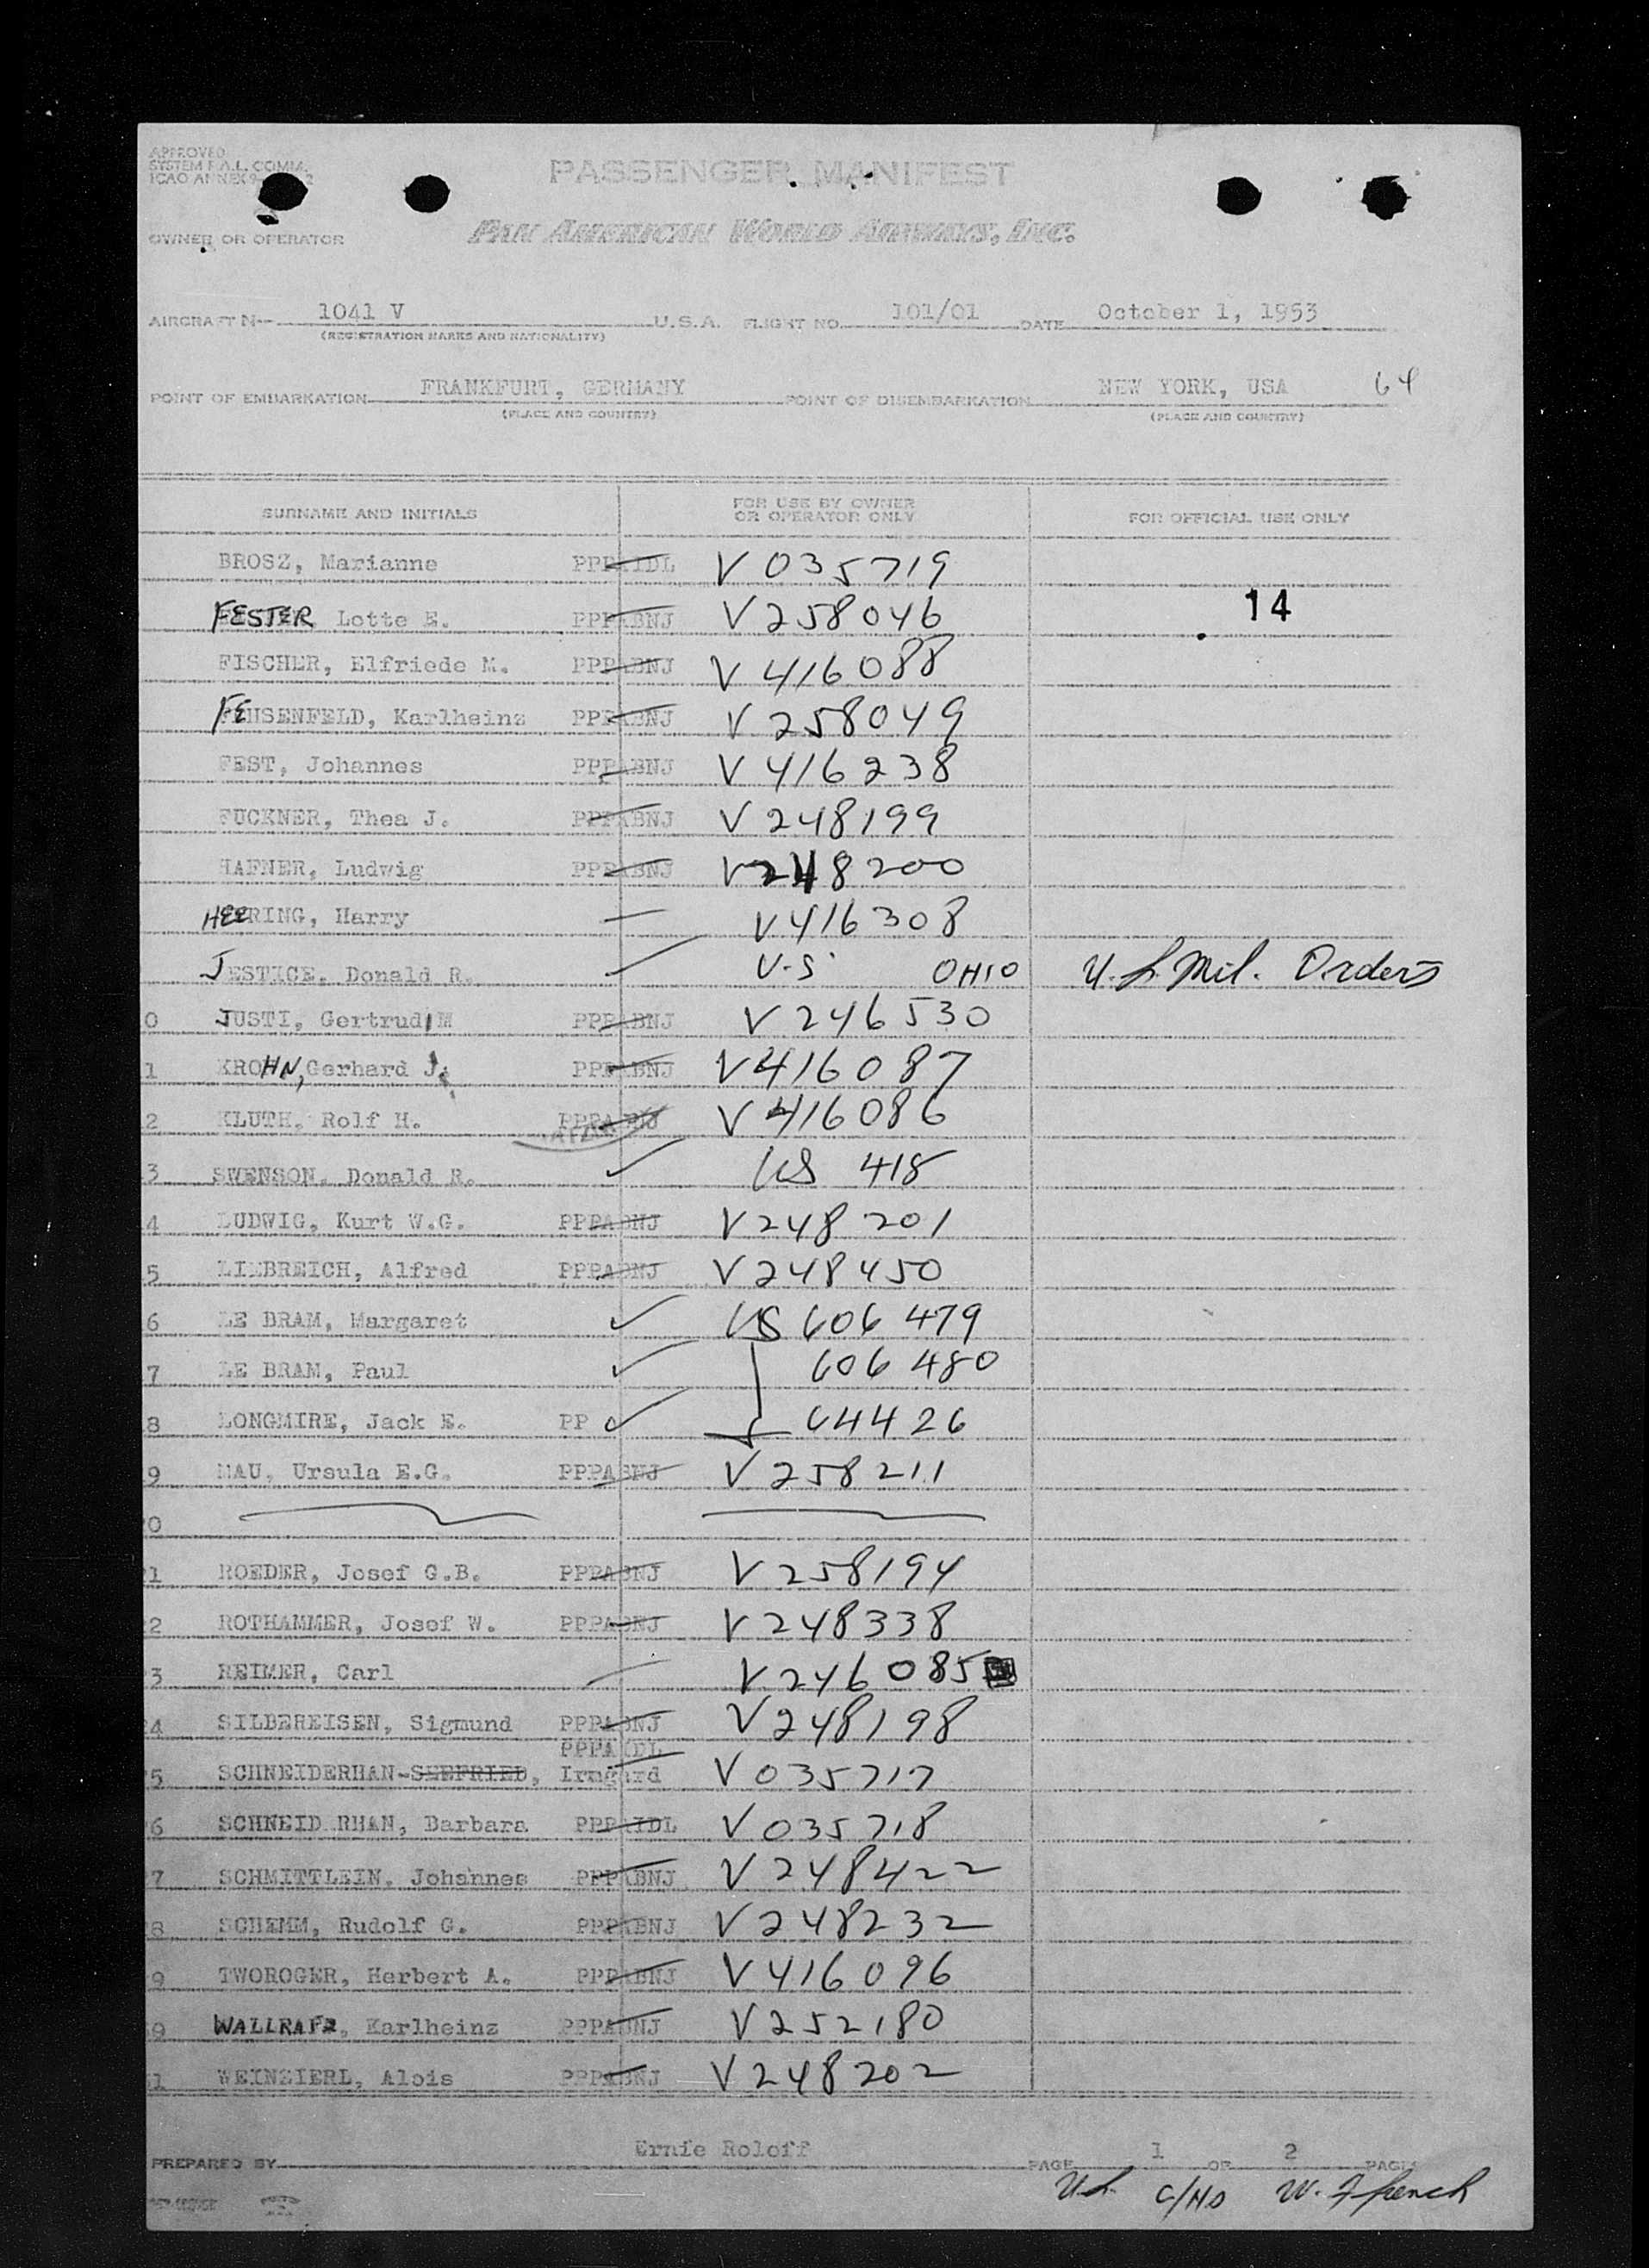 APPROVED
SYSTEM F.A.L. COMM.
ICAO ANNEX 9
PASSENGER MANIFEST
OWNER OR OPERATOR PAN AMERICAN WORLD AIRWAYS, INC.
AIRCRAFT N— 1041 V U.S.A. FLIGHT NO. 101/01 DATE October 1, 1953
(REGISTRATION MARKS AND NATIONALITY)
POINT OF EMBARKATION FRANKFURT, GERMANY POINT OF DISEMBARKATION NEW YORK, USA 64
(PLACE AND COUNTRY) (PLACE AND COUNTRY)
SURNAME AND INITIALS FOR USE BY OWNER OR OPERATOR ONLY FOR OFFICIAL USE ONLY
BROSZ, Marianne PPPAIDL V 035719
FESTER Lotte E. PPPABNJ V 258046 14
FISCHER, Elfriede M. PPPABNJ V 416088
FEHSENFELD, Karlheinz PPPABNJ V 258049
FEST, Johannes PPPABNJ V 416238
FUCKNER, Thea J. PPPABNJ V 248199
HAFNER, Ludwig PPPABNJ V 248200
HEERING, Harry — V 416308
JESTICE, Donald R. ✓ U.S. OHIO U.S. Mil. Orders
0 JUSTI, Gertrud M PPPABNJ V 246530
1 KROHN, Gerhard J. PPPABNJ V 416087
2 KLUTH, Rolf H. PPPABNJ V 416086
3 SWENSON, Donald R. ✓ US 418
4 LUDWIG, Kurt W.G. PPPABNJ V 248201
5 LIEBREICH, Alfred PPPABNJ V 248450
6 LE BRAM, Margaret ✓ US 606479
7 LE BRAM, Paul ✓ 606480
8 LONGMIRE, Jack E. PP ✓ 64426
9 MAU, Ursula E.G. PPPABNJ V 258211
0
1 ROEDER, Josef G.B. PPPABNJ V 258194
2 ROTHAMMER, Josef W. PPPABNJ V 248338
3 REIMER, Carl V 246085
4 SILBEREISEN, Sigmund PPPABNJ V 248198
PPPAIDL
5 SCHNEIDERHAN-SEEFRIED, Irmgard V 035717
6 SCHNEID RHAN, Barbara PPPAIDL V 035718
7 SCHMITTLEIN, Johannes PPPABNJ V 248422
8 SCHEMM, Rudolf G. PPPABNJ V 248232
9 TWOROGER, Herbert A. PPPABNJ V 416096
9 WALLRAFF, Karlheinz PPPABNJ V 252180
1 WEINZIERL, Alois PPPABNJ V 248202
PREPARED BY Ernie Roloff PAGE 1 OF 2 PAGES
U.S. C/HO W. Ffrench